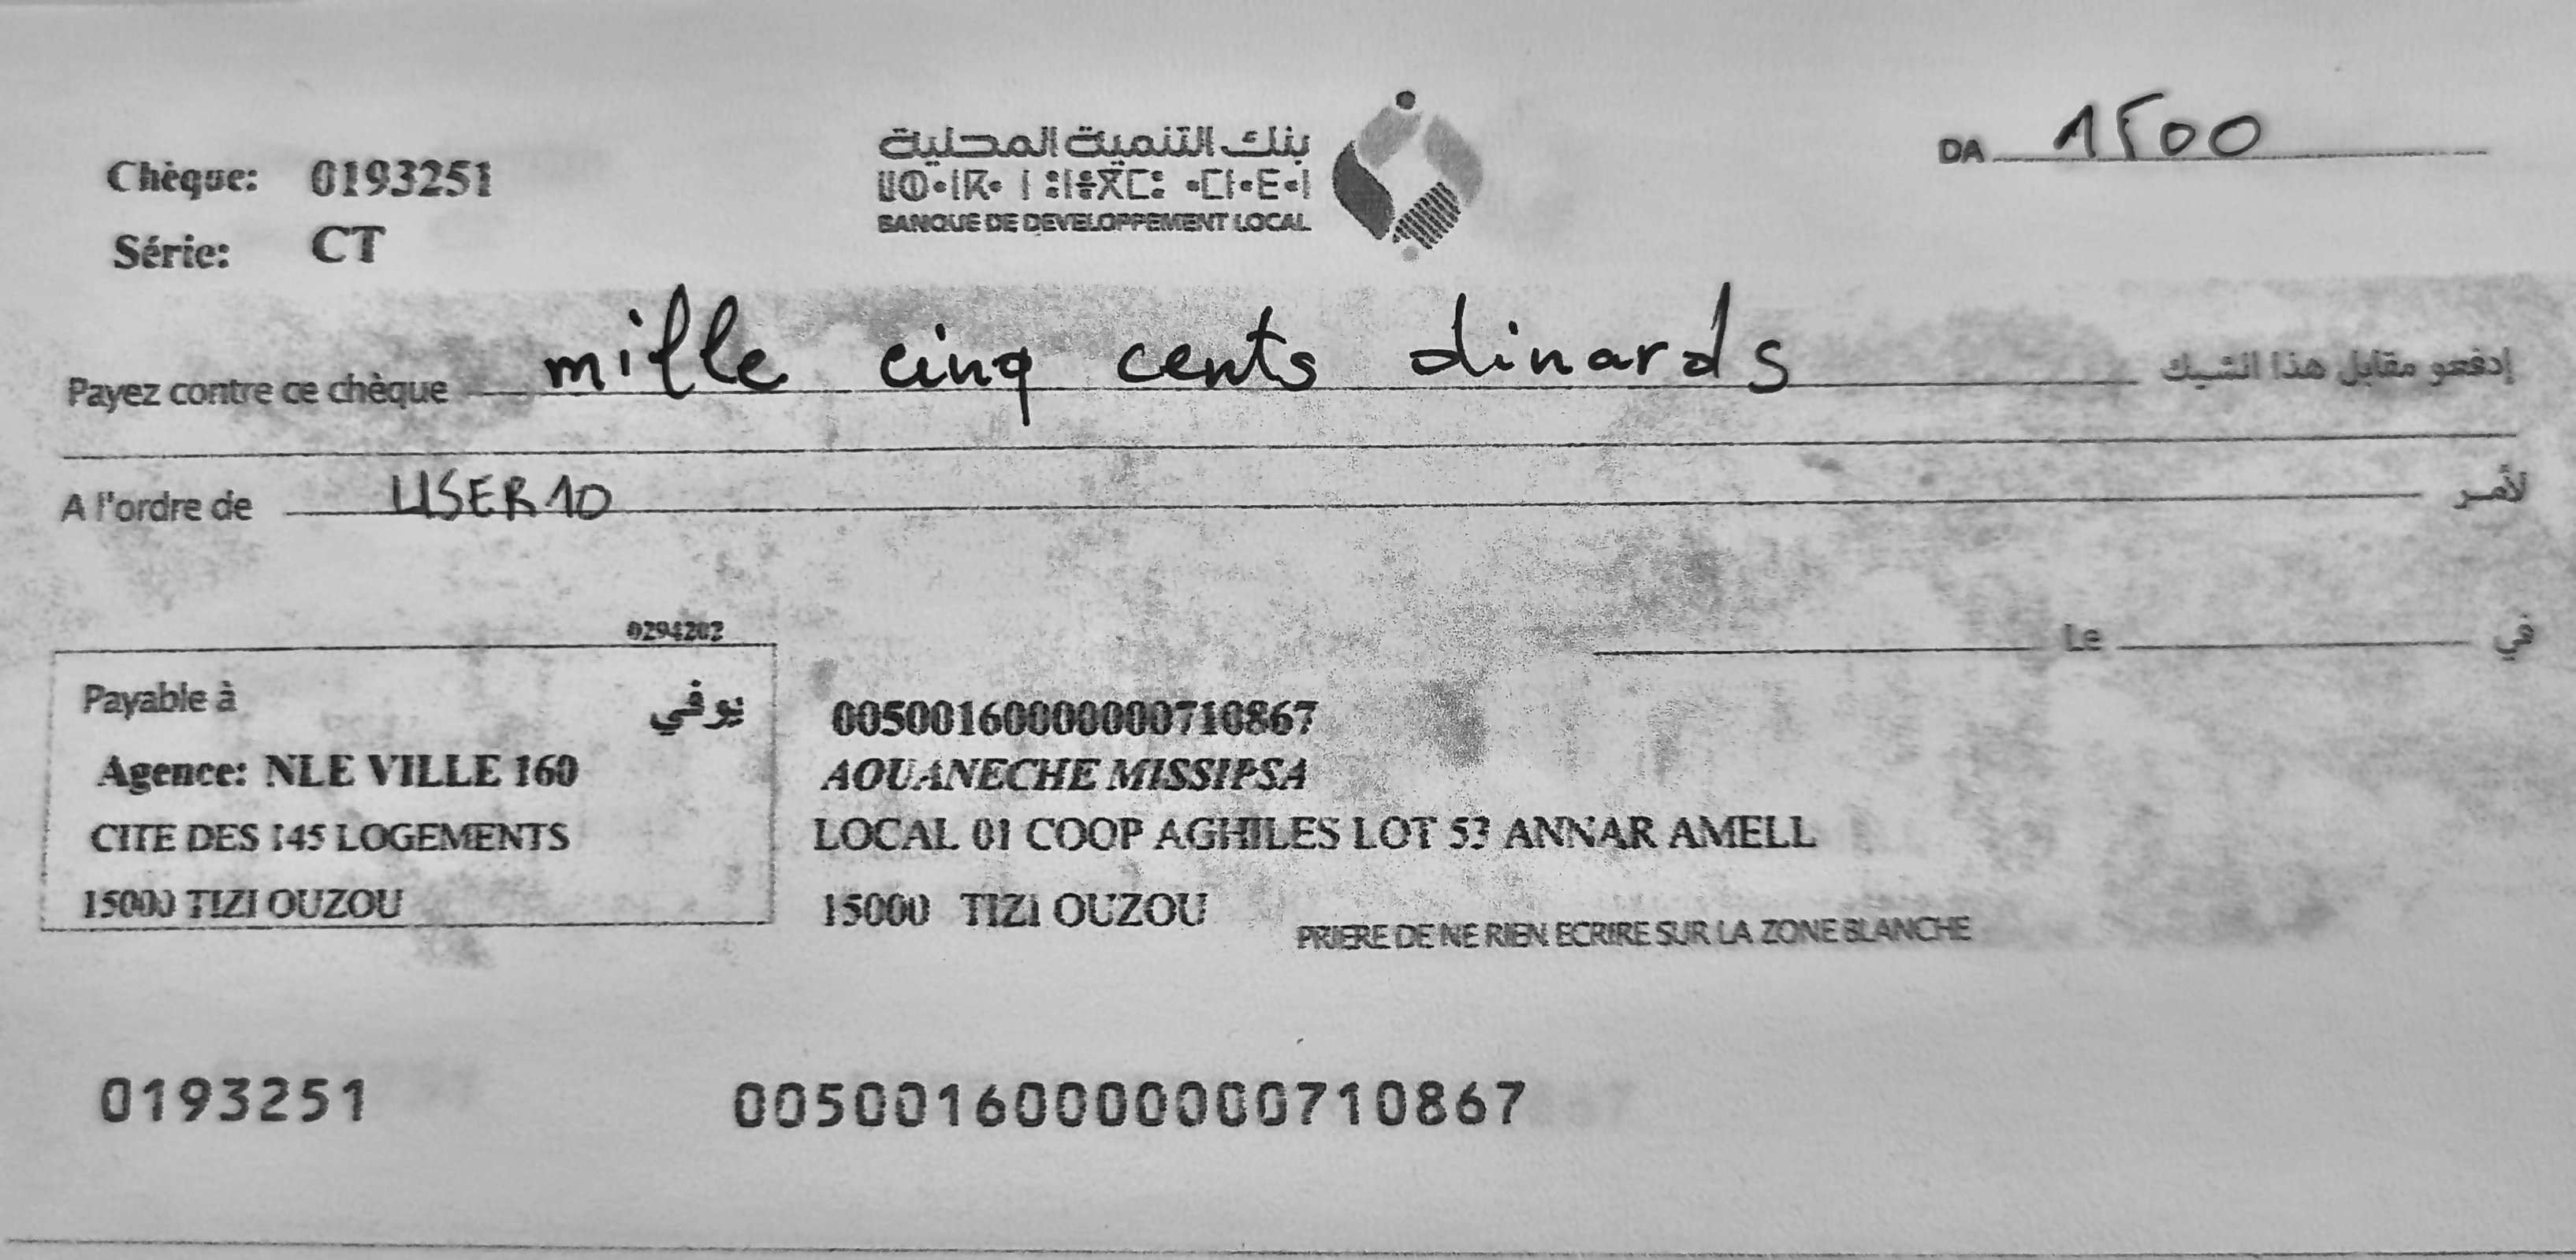 بنك التنمية المحلية
BANQUE DE DEVELOPPEMENT LOCAL
DA 1500
Chèque: 0193251
Série: CT
Payez contre ce chèque mille cinq cents dinards إدفعو مقابل هذا الشيك
A l'ordre de USER 10 لأمر
0294202
Le في
Payable à يوفي
Agence: NLE VILLE 160
CITE DES 145 LOGEMENTS
15000 TIZI OUZOU
00500160000000710867
AOUANECHE MISSIPSA
LOCAL 01 COOP AGHILES LOT 53 ANNAR AMELL
15000 TIZI OUZOU
PRIERE DE NE RIEN ECRIRE SUR LA ZONE BLANCHE
0193251
00500160000000710867